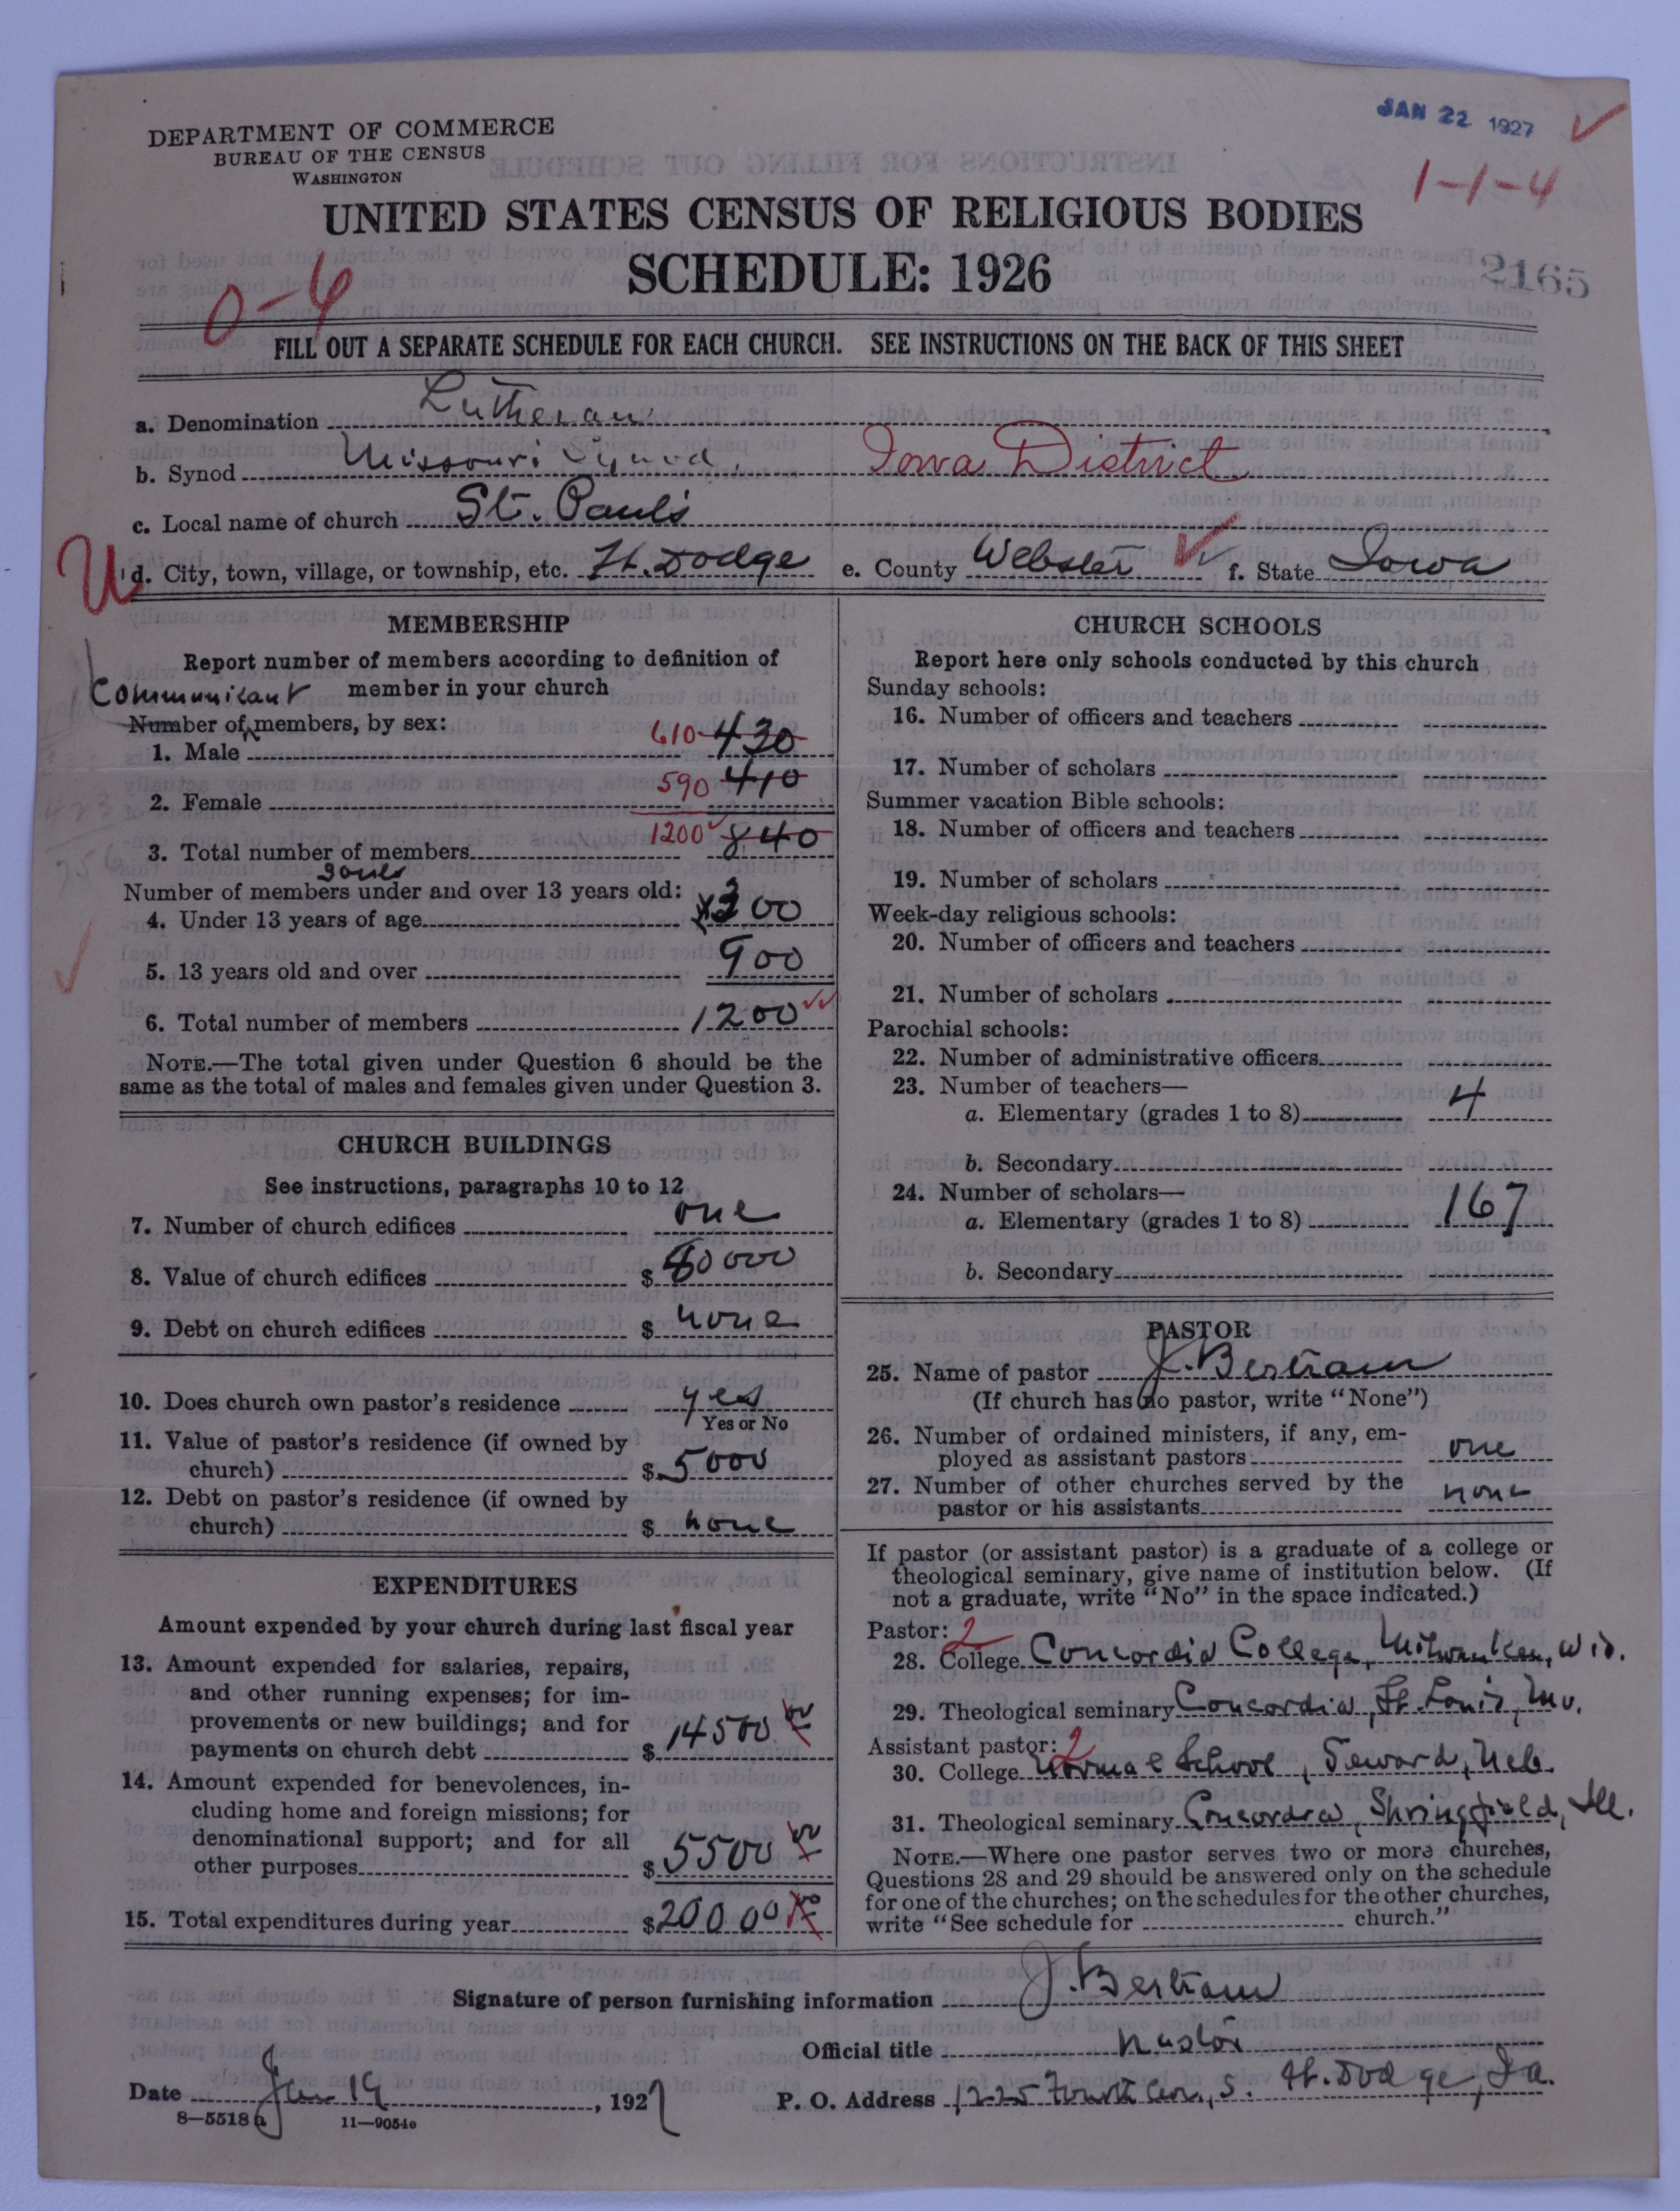 JAN 22 1927
DEPARTMENT OF COMMERCE
BUREAU OF THE CENSUS
WASHINGTON
1-1-4
UNITED STATES CENSUS OF RELIGIOUS BODIES
SCHEDULE: 1926
2165
0-4
FILL OUT A SEPARATE SCHEDULE FOR EACH CHURCH. SEE INSTRUCTIONS ON THE BACK OF THIS SHEET
a. Denomination Lutheran
b. Synod Missouri Synod. Iowa District
c. Local name of church St. Paul's
U d. City, town, village, or township, etc. Ft. Dodge e. County Webster f. State Iowa
MEMBERSHIP
Report number of members according to definition of
member in your church
Communicant
Number of members, by sex:
1. Male 610 430
2. Female 590 410
3. Total number of members 1200 840
souls
Number of members under and over 13 years old:
4. Under 13 years of age 300
5. 13 years old and over 900
6. Total number of members 1200
NOTE.—The total given under Question 6 should be the
same as the total of males and females given under Question 3.
CHURCH BUILDINGS
See instructions, paragraphs 10 to 12
7. Number of church edifices one
8. Value of church edifices $ 80000
9. Debt on church edifices $ none
10. Does church own pastor's residence yes
Yes or No
11. Value of pastor's residence (if owned by
church) $ 5000
12. Debt on pastor's residence (if owned by
church) $ none
EXPENDITURES
Amount expended by your church during last fiscal year
13. Amount expended for salaries, repairs,
and other running expenses; for im-
provements or new buildings; and for
payments on church debt $ 14500 00
14. Amount expended for benevolences, in-
cluding home and foreign missions; for
denominational support; and for all
other purposes $ 5500 00
15. Total expenditures during year $ 20000 00
CHURCH SCHOOLS
Report here only schools conducted by this church
Sunday schools:
16. Number of officers and teachers
17. Number of scholars
Summer vacation Bible schools:
18. Number of officers and teachers
19. Number of scholars
Week-day religious schools:
20. Number of officers and teachers
21. Number of scholars
Parochial schools:
22. Number of administrative officers
23. Number of teachers—
a. Elementary (grades 1 to 8) 4
b. Secondary
24. Number of scholars—
a. Elementary (grades 1 to 8) 167
b. Secondary
PASTOR
25. Name of pastor J. Bertram
(If church has no pastor, write "None")
26. Number of ordained ministers, if any, em-
ployed as assistant pastors one
27. Number of other churches served by the
pastor or his assistants none
If pastor (or assistant pastor) is a graduate of a college or
theological seminary, give name of institution below. (If
not a graduate, write "No" in the space indicated.)
Pastor: 2
28. College Concordia College, Milwaukee, Wis.
29. Theological seminary Concordia, St. Louis, Mo.
Assistant pastor: 2
30. College Normal School, Seward, Neb.
31. Theological seminary Concordia, Springfield, Ill.
NOTE.—Where one pastor serves two or more churches,
Questions 28 and 29 should be answered only on the schedule
for one of the churches; on the schedules for the other churches,
write "See schedule for church."
Signature of person furnishing information J. Bertram
Official title Pastor
Date Jan 19, 1927 P. O. Address 1225 Fourth Ave., S. Ft. Dodge, Ia.
8—5518a 11—9054e